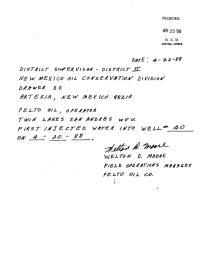 RECEIVED
APR 25 '88
O. C. D.
ARTESIA, OFFICE
DATE: 4-22-88
DISTRICT SUPERVISOR - DISTRICT II
NEW MEXICO OIL CONSERVATION DIVISION
DRAWER DD
ARTESIA, NEW MEXICO 88210
PELTO OIL, OPERATOR
TWIN LAKES SAN ANDRES WFU
FIRST INJECTED WATER INTO WELL # 40
ON 4-20-88.
Welton D. Moore
WELTON D. MOORE
FIELD OPERATIONS MANAGER
PELTO OIL CO.